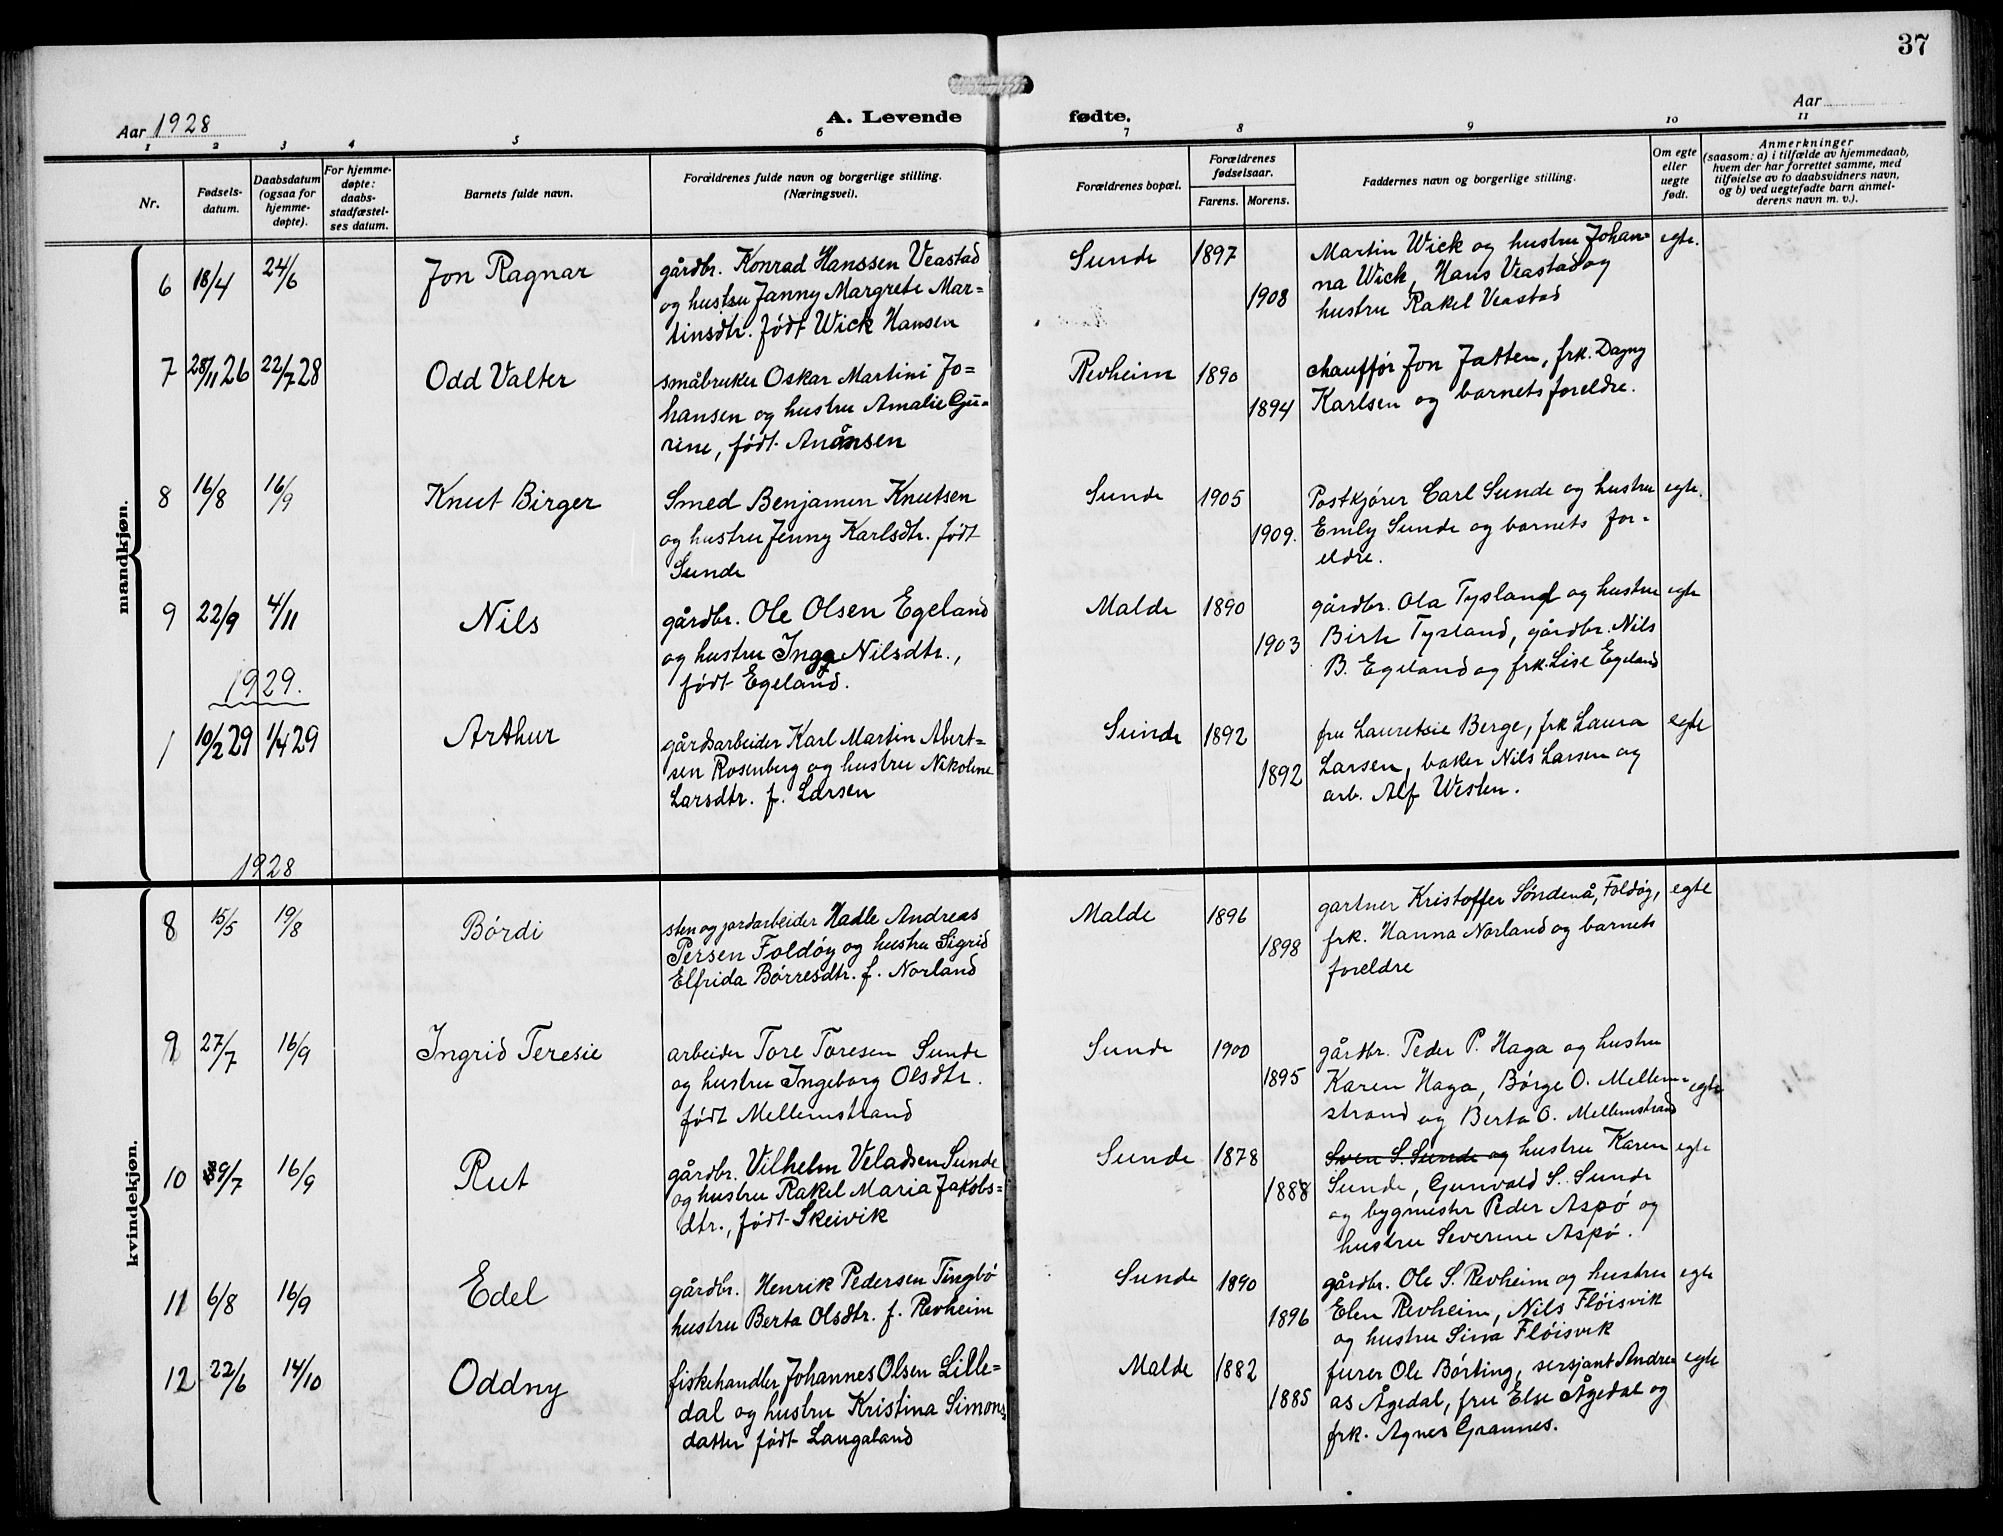 37
Aar 1928
A. Levende fødte.
Aar
1 2 3 4 5 6 7 8 9 10 11
Nr.
Fødsels-
datum.
Daabsdatum
(ogsaa for
hjemme-
døpte).
For hjemme-
døpte:
daabs-
stadfæstel-
ses datum.
Barnets fulde navn.
Forældrenes fulde navn og borgerlige stilling.
(Næringsvei).
Forældrenes bopæl.
Forældrenes
fødselsaar.
Farens. Morens.
Faddernes navn og borgerlige stilling.
Om egte
eller
uegte
født.
Anmerkninger
(saasom: a) i tilfælde av hjemmedaab,
hvem der har forrettet samme, med
tilføielse av to daabsvidners navn,
og b) ved uegtefødte barn anmel-
derens navn m. v.).
mandkjøn.
6 18/4 24/6 Jon Ragnar
gårdbr. Konrad Hanssen Veastad
og hustru Janny Margrete Mar=
tinsdtr. født Wick Hansen
Sunde 1897
1908
Martin Wick og hustru Johan=
na Wick, Hans Veastad og
hustru Rakel Veastad
egte.
7 28/11 26 22/7 28 Odd Valter
småbruker Oskar Martini Jo=
hansen og hustru Amalie Gu=
rine, født Anånsen
Revheim 1890
1894
chauffør Jon Jatten, frk. Dagny
Karlsen og barnets foreldre.
8 16/8 16/9 Knut Birger
Smed Benjamin Knutsen
og hustru Jenny Karlsdtr. født
Sunde
Sunde 1905
1909.
Postkjører Carl Sunde og hustru
Emly Sunde og barnets for-
eldre.
egte.
9 22/9 4/11 Nils
gårdbr. Ole Olsen Egeland
og hustru Inga Nilsdtr.,
født Egeland.
Malde 1890
1903
gårdbr. Ola Tysland og hustru
Birte Tysland, gårdbr. Nils
B. Egeland og frk. Lise Egeland
egte
1929.
1 10/2 29 1/4 29 Arthur
gårdsarbeider Karl Martin Abert=
sen Rosenberg og hustru Nikoline
Larsdtr. f. Larsen
Sunde 1892
1892
fru Berge, frk Laura
Larsen, baker Nils Larsen og
arb. Alf Westen.
egte
1928
kvindekjøn.
8 15/5 19/8 Børdi
sten og jordarbeider Hadle Andreas
Persen Foldøy og hustru Sigrid
Elfrida Børresdtr. f. Norland
Malde 1896
1898
gartner Kristoffer Søndenå, Foldøy,
frk. Hanna Norland og barnets
foreldre
egte
9 27/7 16/9 Ingrid Teresie
arbeider Tore Toresen Sunde
og hustru Ingeborg Olsdtr.
født Mellemstrand
Sunde 1900
1895
gårdbr. Peder P. Haga og hustru
Karen Haga, Børge O. Mellem=
strand og Berta O. Mellemstrand
egte
10 9/7 16/9 Rut
gårdbr. Vilhelm Veladsen Sunde
og hustru Rakel Maria Jakobs=
dtr., født Skeivik
Sunde 1878
1888
Sven S. Sunde og hustru Karen
Sunde, Gunvald S. Sunde
og bygmester Peder Aspø og
hustru Severine Aspø.
egte
11 6/8 16/9 Edel
gårdbr. Henrik Pedersen Tingbø
hustru Berta Olsdtr. f. Revheim
Sunde 1890
1896
gårdbr. Ole S. Revheim og hustru
Elen Revheim, Nils Fløisvik
og hustru Sina Fløisvik
egte
12 22/6 14/10 Oddny
fiskehandler Johannes Olsen Lille=
dal og hustru Kristina Simons
datter født Langaland
Malde 1882
1885
furer Ole Børting, sersjant Andre
as Ågedal, fru Else Ågedal og
frk. Agnes Grannes.
egte